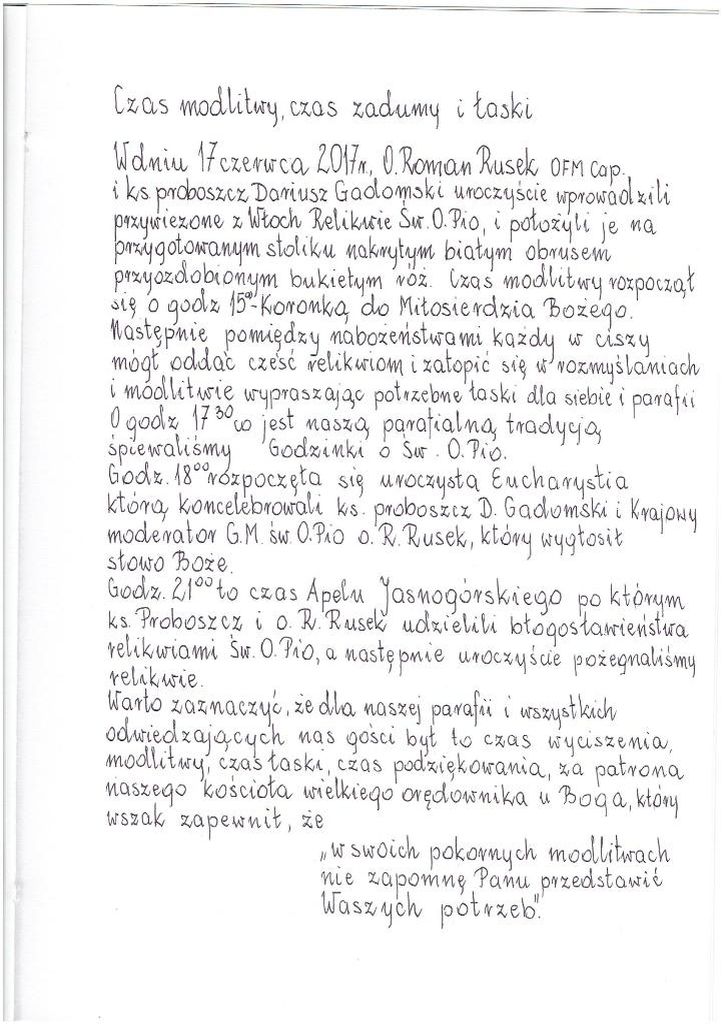 Czas modlitwy, czas zadumy i łaski
W dniu 17 czerwca 2017r, O. Roman Rusek OFM Cap.
i ks. proboszcz Dariusz Gadomski uroczyście wprowadzili
przywiezone z Włoch Relikwie Św. O. Pio, i położyli je na
przygotowanym stoliku nakrytym białym obrusem
przyozdobionym bukietym róż. Czas modlitwy rozpoczął
się o godz 15⁰⁰-Koronką do Miłosierdzia Bożego.
Następnie pomiędzy nabożeństwami każdy w ciszy
mógł oddać cześć relikwiom i zatopić się w rozmyślaniach
i modlitwie wypraszając potrzebne łaski dla siebie i parafii
O godz 17³⁰ co jest naszą parafialną tradycją
śpiewaliśmy Godzinki o Św. O. Pio.
Godz. 18⁰⁰ rozpoczęła się uroczysta Eucharystia
którą koncelebrowali ks. proboszcz D. Gadomski i Krajowy
moderator G.M. św. O. Pio o. R. Rusek, który wygłosił
słowo Boże.
Godz. 21⁰⁰ to czas Apelu Jasnogórskiego po którym
ks. Proboszcz i o. R. Rusek udzielili błogosławieństwa
relikwiami Św. O. Pio, a następnie uroczyście pożegnaliśmy
relikwie.
Warto zaznaczyć, że dla naszej parafii i wszystkich
odwiedzających nas gości był to czas wyciszenia,
modlitwy, czas łaski, czas podziękowania, za patrona
naszego kościoła wielkiego orędownika u Boga, który
wszak zapewnił, że
„w swoich pokornych modlitwach
nie zapomnę Panu przedstawić
Waszych potrzeb".